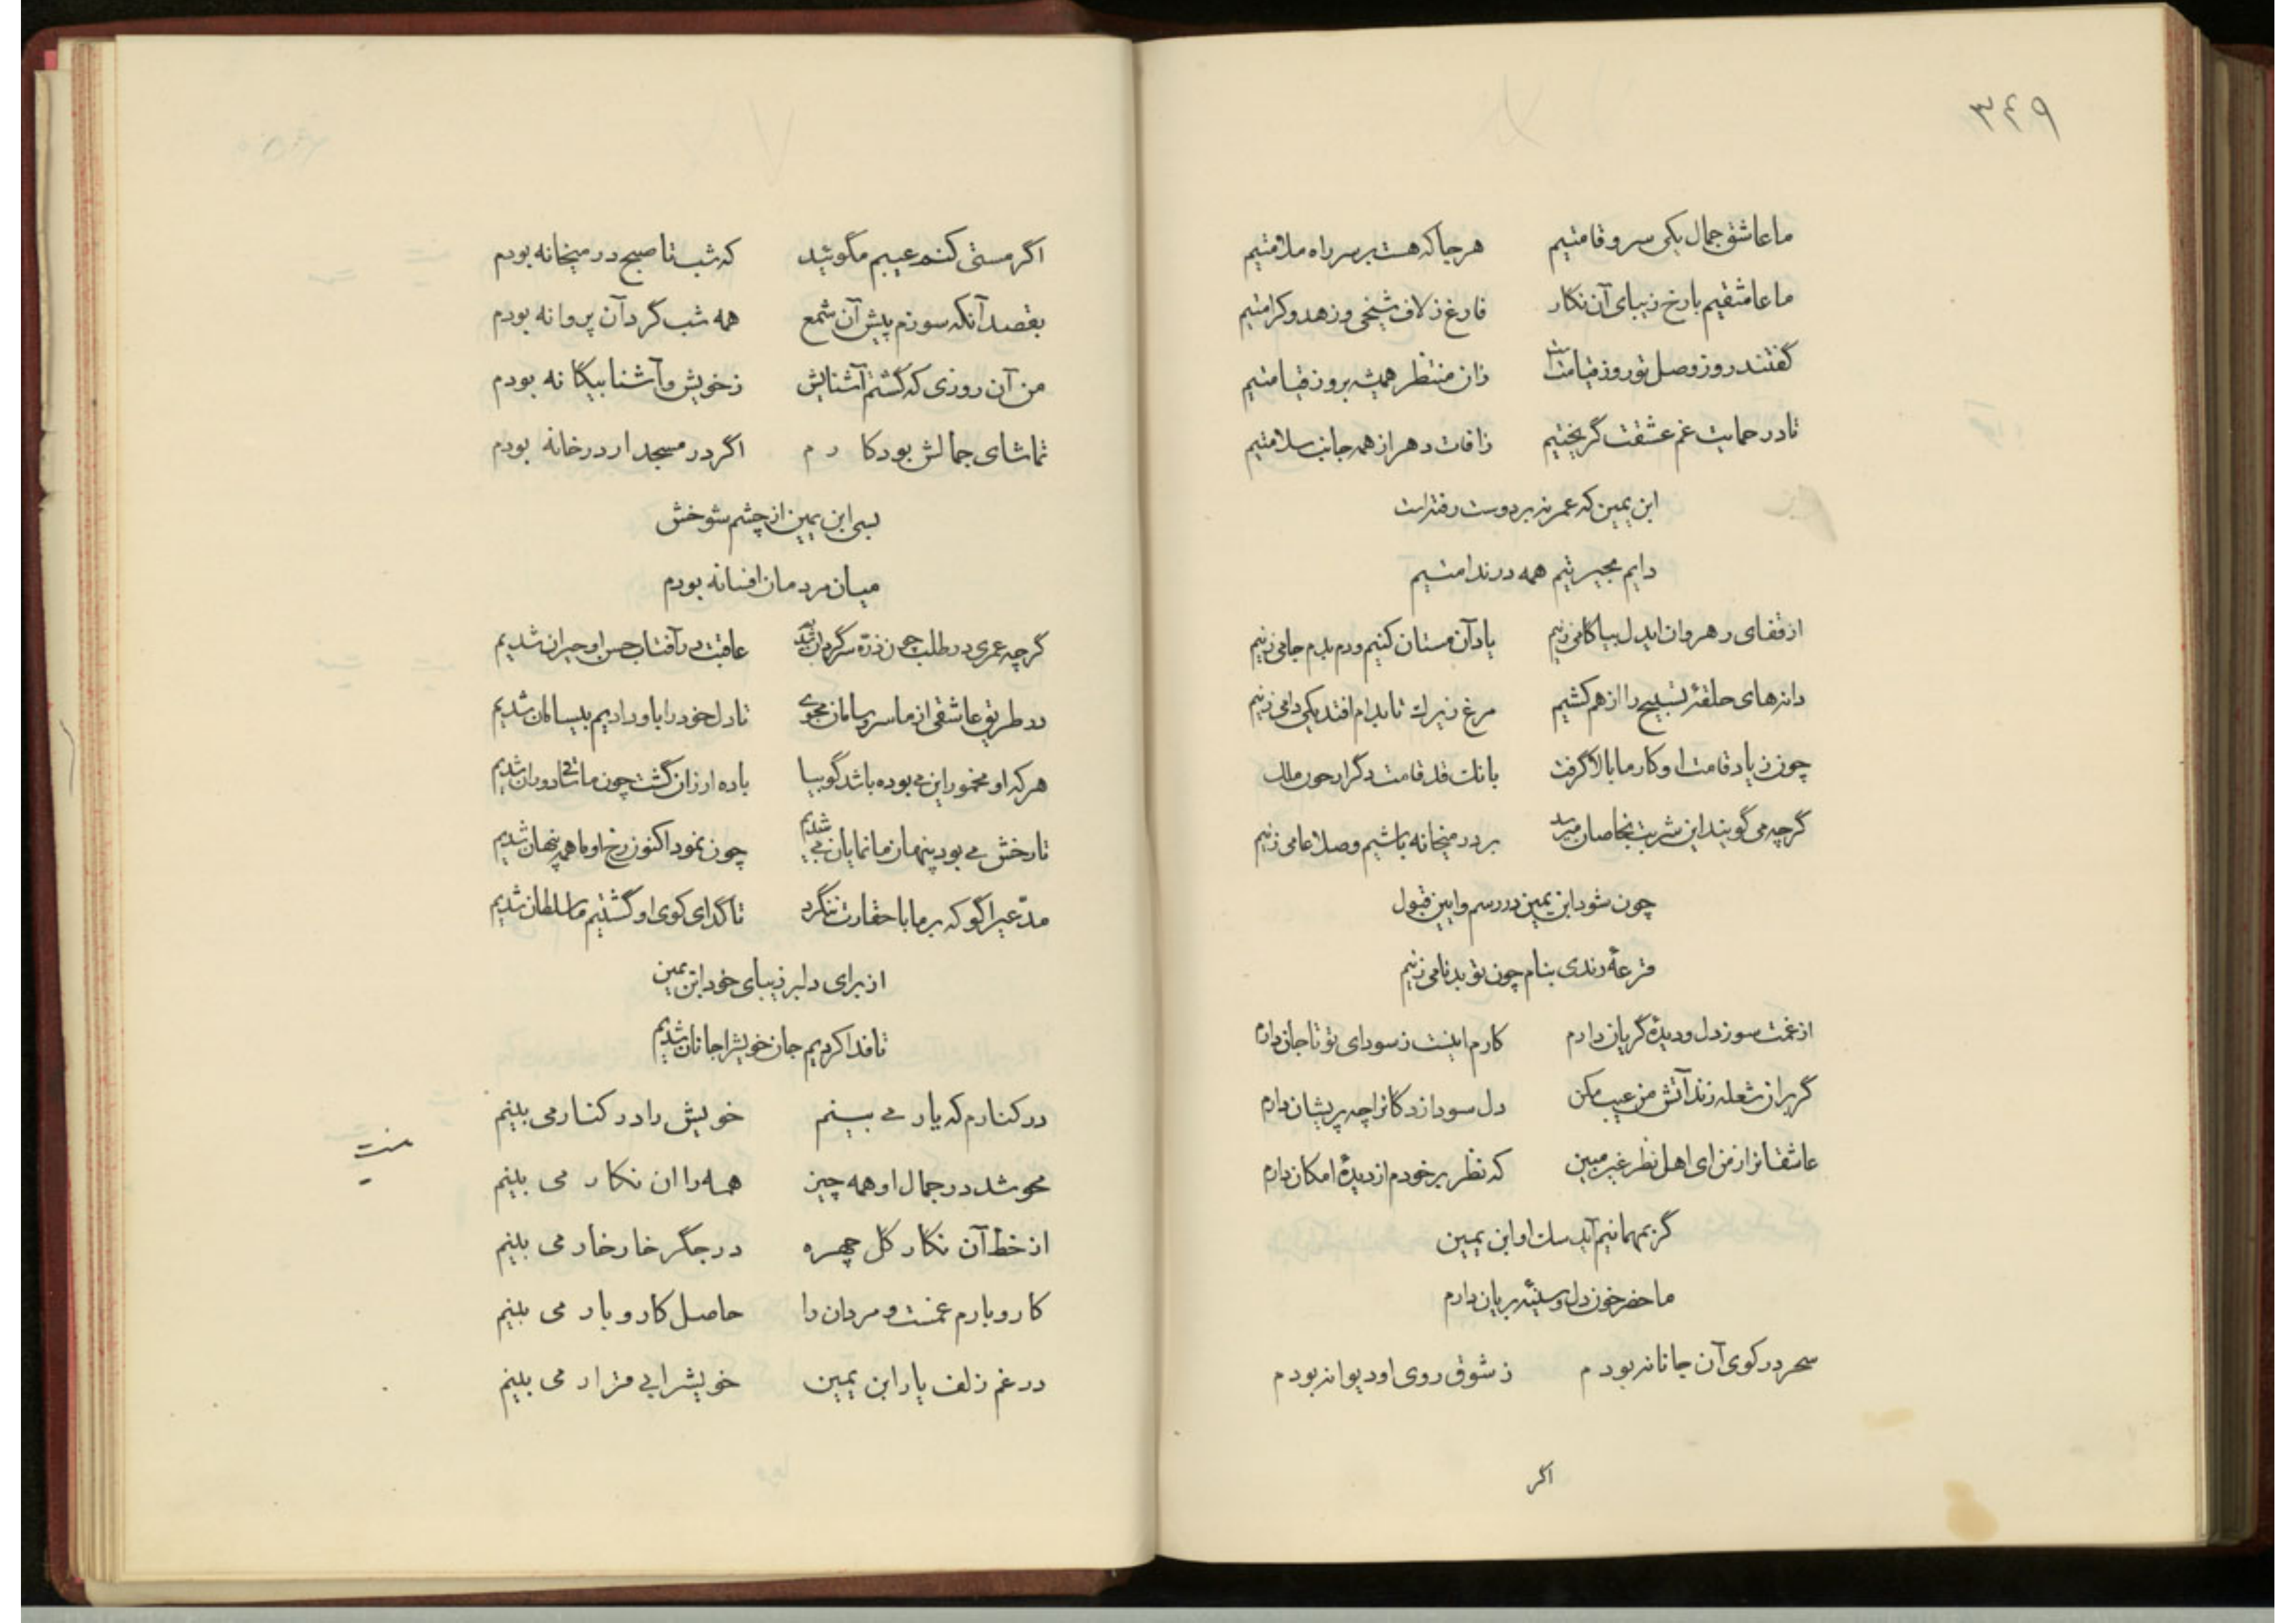 ۳۴۹
ما عاشق جمال یکی سرو قامتیم هرجا که هست بر سر راه ملامتیم
ما عاشقیم با رخ زیبای آن نگار فارغ ز لاف شیخی و زهد و کرامتیم
گفتند روز وصل تو روز قیامت است زان منتظر همیشه بروز قیامتیم
تا در حمایت غم عشقت گریختیم ز افات دهر از همه جانب سلامتیم
ابن یمین که عمر نه بر دوست رفته است
دایم بحیرتیم همه در ندامتیم
از قفای رهروان ایدل بیا گامی زنیم یاد آن مستان کنیم و دم بدم جامی زنیم
دانه‌های حلقهٔ تسبیح را از هم کشیم مرغ زیرک تا بدام افتد یکی دامی زنیم
چون ز یاد قامت او کار ما بالا گرفت بانک قد قامت دگر
گرچه می گویند این شربت بخاصان میرسد بر در میخانه باشیم و صلا عامی زنیم
چون شود ابن یمین در رسم و ایین قبول
قرعهٔ رندی بنام چون تو بدنامی زنیم
از غمت سوز دل و دیدهٔ گریان دارم کارم اینست ز سودای تو تا جان دارم
گر بر ان شعله زند آتش من عیب مکن دل سودازدگان را چه پریشان دارم
عاشقانرا ز من ای اهل نظر غیر مبین که نظر بر خودم از دیدهٔ امکان دارم
گر بمهمانیم آید ابن یمین
ما حضر خون دل و سینهٔ بریان دارم
سحر در کوی آن جانانه بودم ز شوق روی او دیوانه بودم
اگر
اگر مستی کنم عیبم مگوئید که شب تا صبح در میخانه بودم
بقصد آنکه سوزم پیش آن شمع همه شب گرد آن پروانه بودم
من آن روزی که گشتم آشنایش ز خویش و آشنا بیگانه بودم
تماشای جمالش بود کارم اگر در مسجد ار در خانه بودم
بسی ابن یمین از چشم شوخش
میان مردمان افسانه بودم
گرچه عمری در طلب چون ذرّه سرگردان شدیم عاقبت در آفتاب حسن او حیران شدیم
در طریق عاشقی از ما سر و سامان مجوی تا دل خود را باو دادیم بیسامان شدیم
هر که او مخمور این می بوده باشد گو بیا باده ارزان گشت چون ما ساقی دوران شدیم
تا رخش می بود پنهان ما نمایان می شدیم چون نمود اکنون رخ او ما همه پنهان شدیم
مدّعیرا گو که بر ما با حقارت ننگرد تا گدای کوی او گشتیم ما سلطان شدیم
از برای دلبر زیبای خود ابن یمین
تا فدا کردیم جان خویشرا جانان شدیم
در کنارم که یار می بینم خویش را در کنار می بینم
محو شد در جمال او همه چیز همه را ان نگار می بینم
از خط آن نگار گل چهره در جگر خار خار می بینم
کار و بارم غمست و مردان را حاصل کار و بار می بینم
در غم زلف یار ابن یمین خویشرا بی قرار می بینم